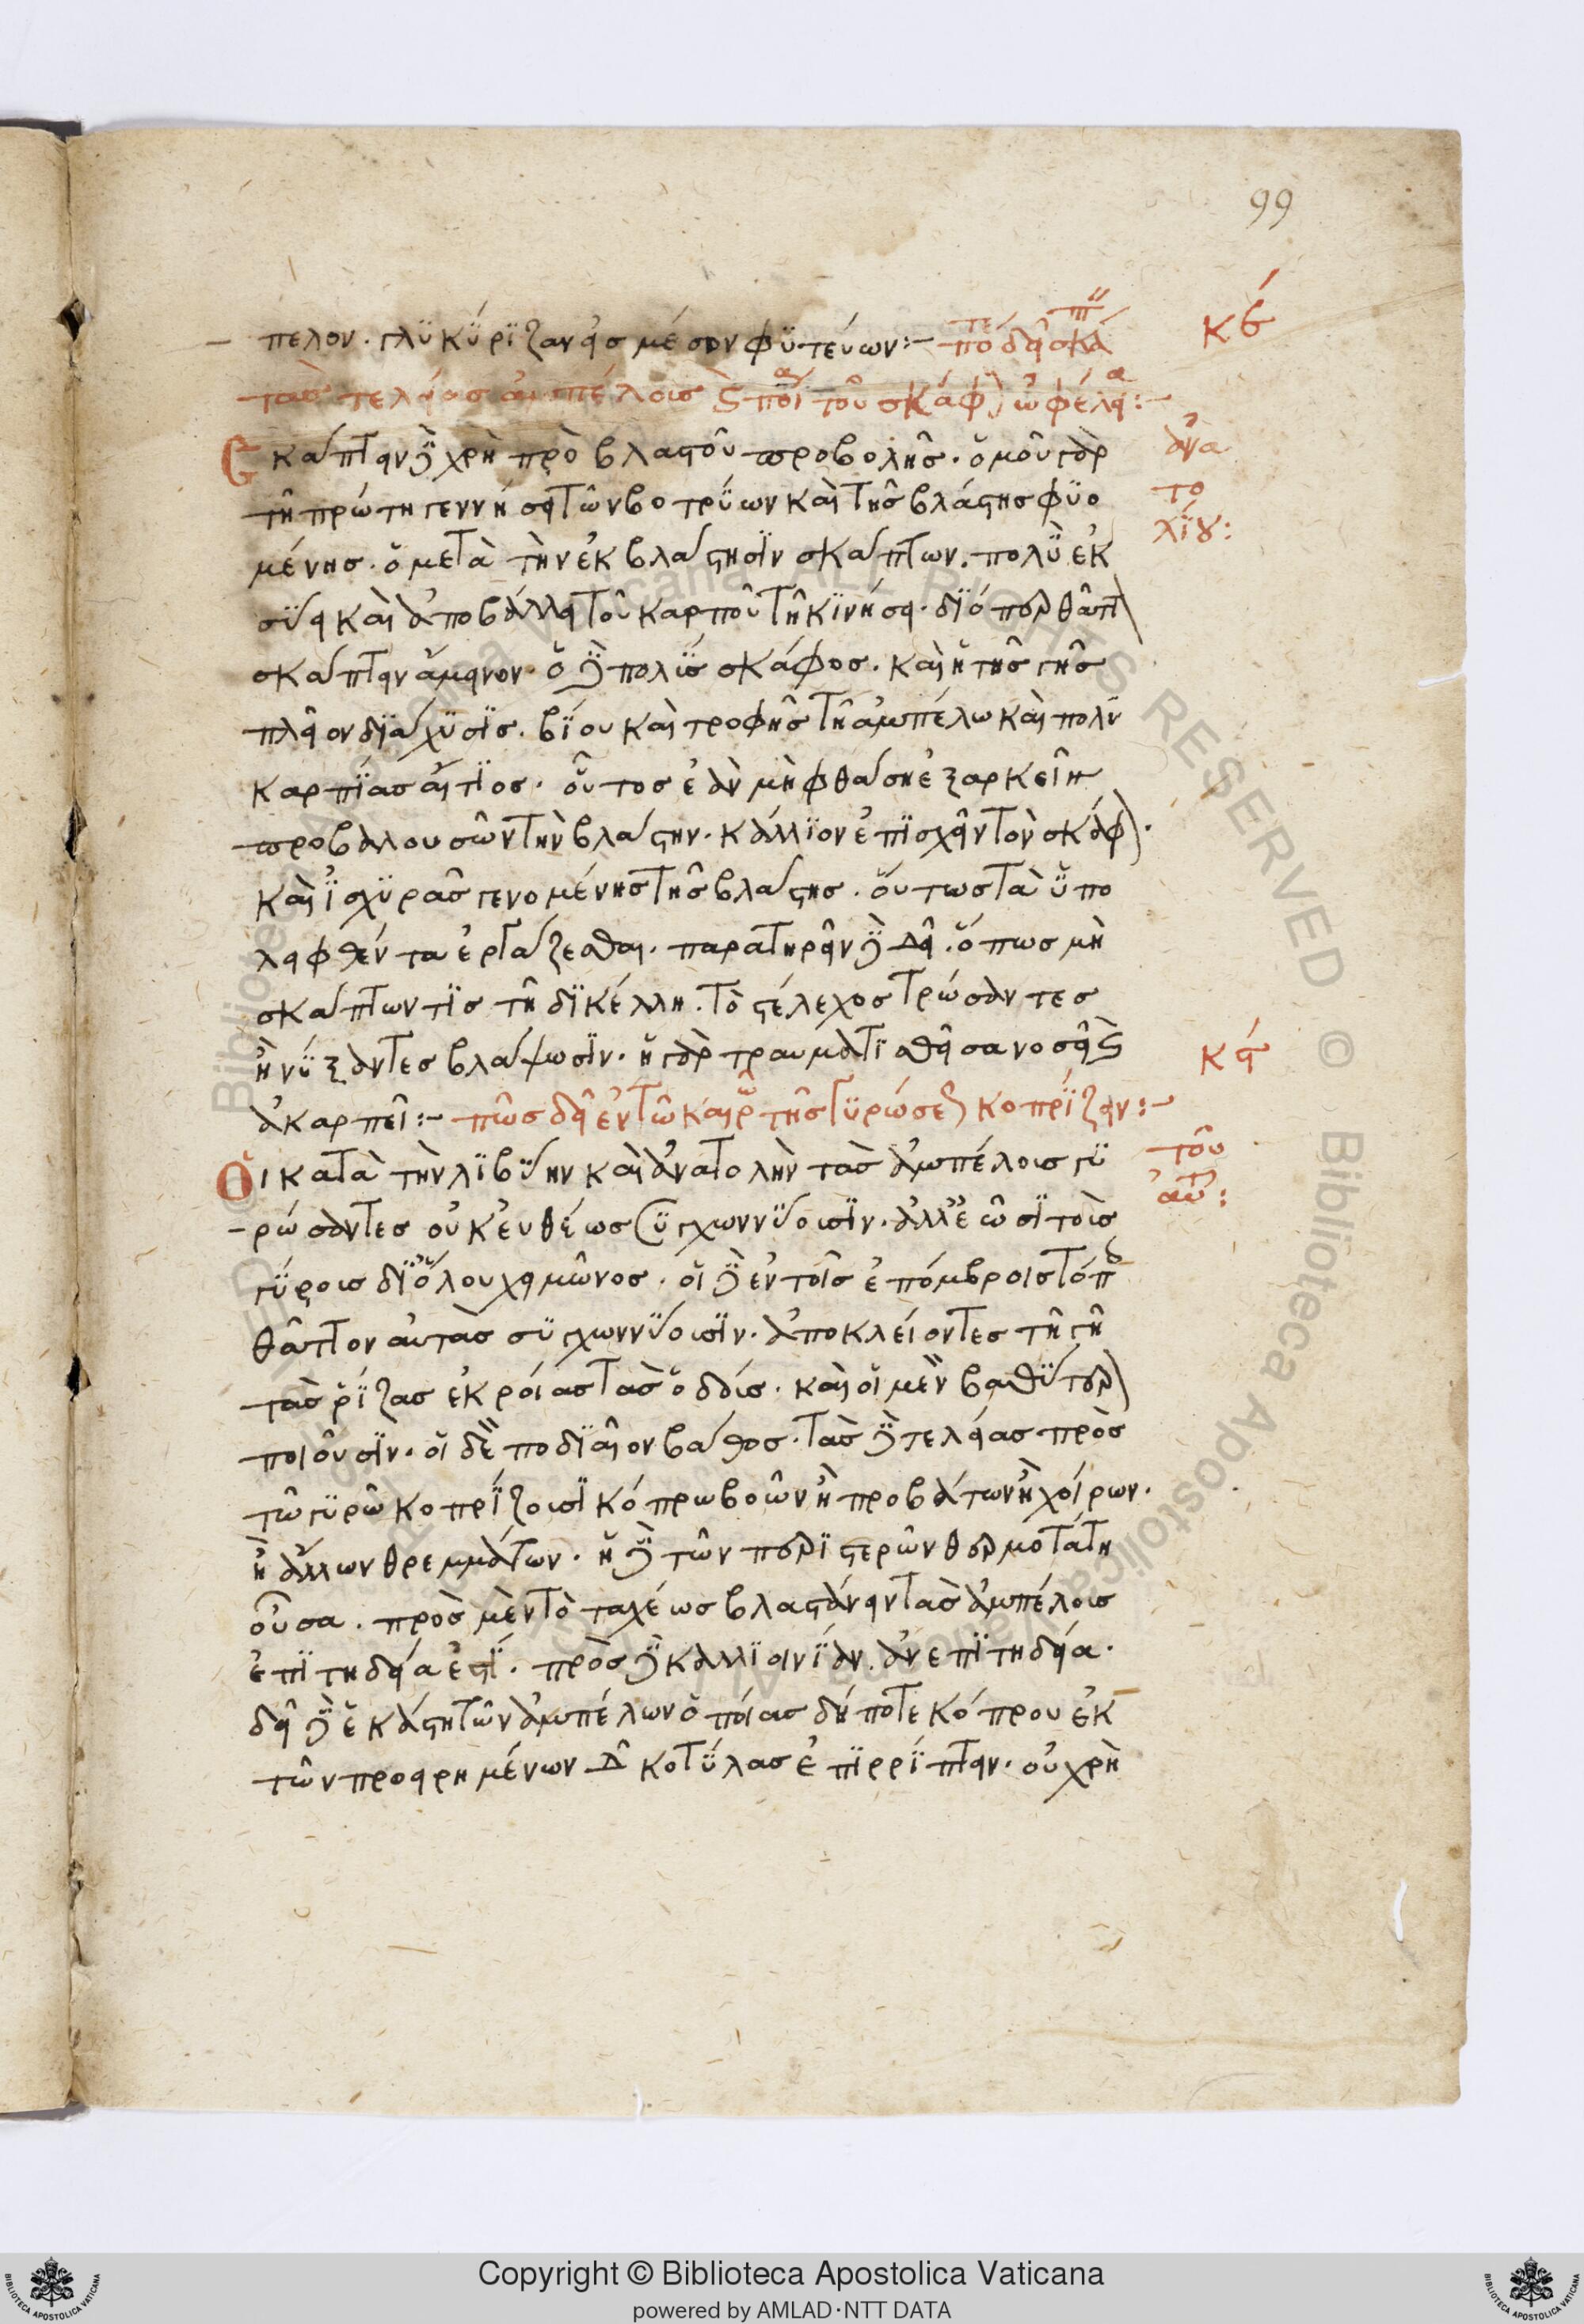 99
πελον. γλϋκϋρϊζαν εἰς μέσον φϋτεύων:- πότε δεῖ σκάπτειν
κϛ́
τὰς τελείας ἀμπέλους καὶ ποία τοῦ σκάφου ὠφέλεια:-
Σκάπτειν δὲ χρὴ πρὸ βλαστοῦ προβολῆς. ὁμοῦ γὰρ
ἀνα
τῆ πρώτη γεννήσει τῶν βοτρΰων καὶ τῆς βλάστης φϋο
το
μένης. ὁ μετὰ τὴν ἐκβλάστησϊν σκάπτων. πολϋ ἐκ
λίου:
σΰει καὶ ἀποβάλλει τοῦ καρποῦ τῆ κϊνήσει. δϊόπερ θᾶττον
σκάπτειν ἄμεινον. ὁ δὲ πολϋς σκάφος. καὶ ἡ τῆς γῆς
πλεῖον δϊάχϋσϊς. βίου καὶ τροφῆς τῆ ἀμπέλω καὶ πολϋ
καρπΐας αἴτϊος. οὗτος ἐὰν μὴ φθάση ἐξαρκεῖν
προβαλουσῶν τὴν βλάστην. κάλλϊον ἐπϊσχεῖν τὸν σκάφον.
καὶ ἰσχϋρᾶς γενομένης τῆς βλάστης. οὕτως τὰ ϋπο
λειφθέντα ἐργάζεσθαι. παρατηρεῖν δὲ δεῖ. ὅπως μὴ
σκάπτων τϊς τῆ δϊκέλλη. τὸ στέλεχος τρώσαντες
ἢ νΰξαντες βλάψωσϊν. ἡ γὰρ τραυματϊσθεῖσα νοσεῖ καὶ
κζ́
ἀκαρπεῖ:- πῶς δεῖ ἐν τῶ καιρῶ τῆς γϋρώσεως κοπρΐζειν:-
Οἱ κατὰ τὴν λϊβΰην καὶ ἀνατολὴν τὰς ἀμπέλους γϋ
τοῦ
αὐτοῦ:
ρώσαντες οὐκ εὐθέως συγχωννΰουσϊν. ἀλλ' ἐῶσϊ τοὺς
γΰρους δϊ' ὅλου χειμῶνος. οἱ δὲ ἐν τοῖς ἐπόμβροις τόποις
θᾶττον αὐτὰς συγχωννΰουσϊν. ἀποκλείοντες τῆ γῆ
τὰς ῥΐζας ἐκροίας τὰς ὁδούς. καὶ οἱ μὲν βαθΰτερον
ποιοῦσϊν. οἱ δὲ ποδϊαῖον βάθος. τὰς δὲ τελείας πρὸς
τῶ γϋρῶ κοπρΐζουσϊ κόπρω βοῶν ἢ προβάτων ἢ χοίρων.
ἢ ἄλλων θρεμμάτων. ἡ δὲ τῶν περϊστερῶν θερμοτάτη
οὖσα. πρὸς μὲν τὸ ταχέως βλαστάνειν τὰς ἀμπέλους
ἐπϊτηδεία ἐστΐ. πρὸς δὲ καλλϊοινΐαν. ἀνεπϊτηδεία.
δεῖ δὲ ἑκάστη τῶν ἀμπέλων ὁποίας δήποτε κόπρου ἐκ
τῶν προειρημένων δ̄ κοτΰλας ἐπϊρρΐπτειν. οὐ χρὴ
Copyright © Biblioteca Apostolica Vaticana
powered by AMLAD·NTT DATA